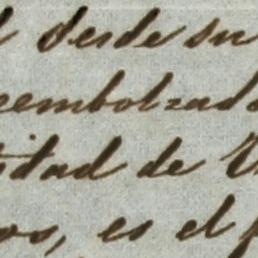 desde su
eembolzado
tidad de
os, es el